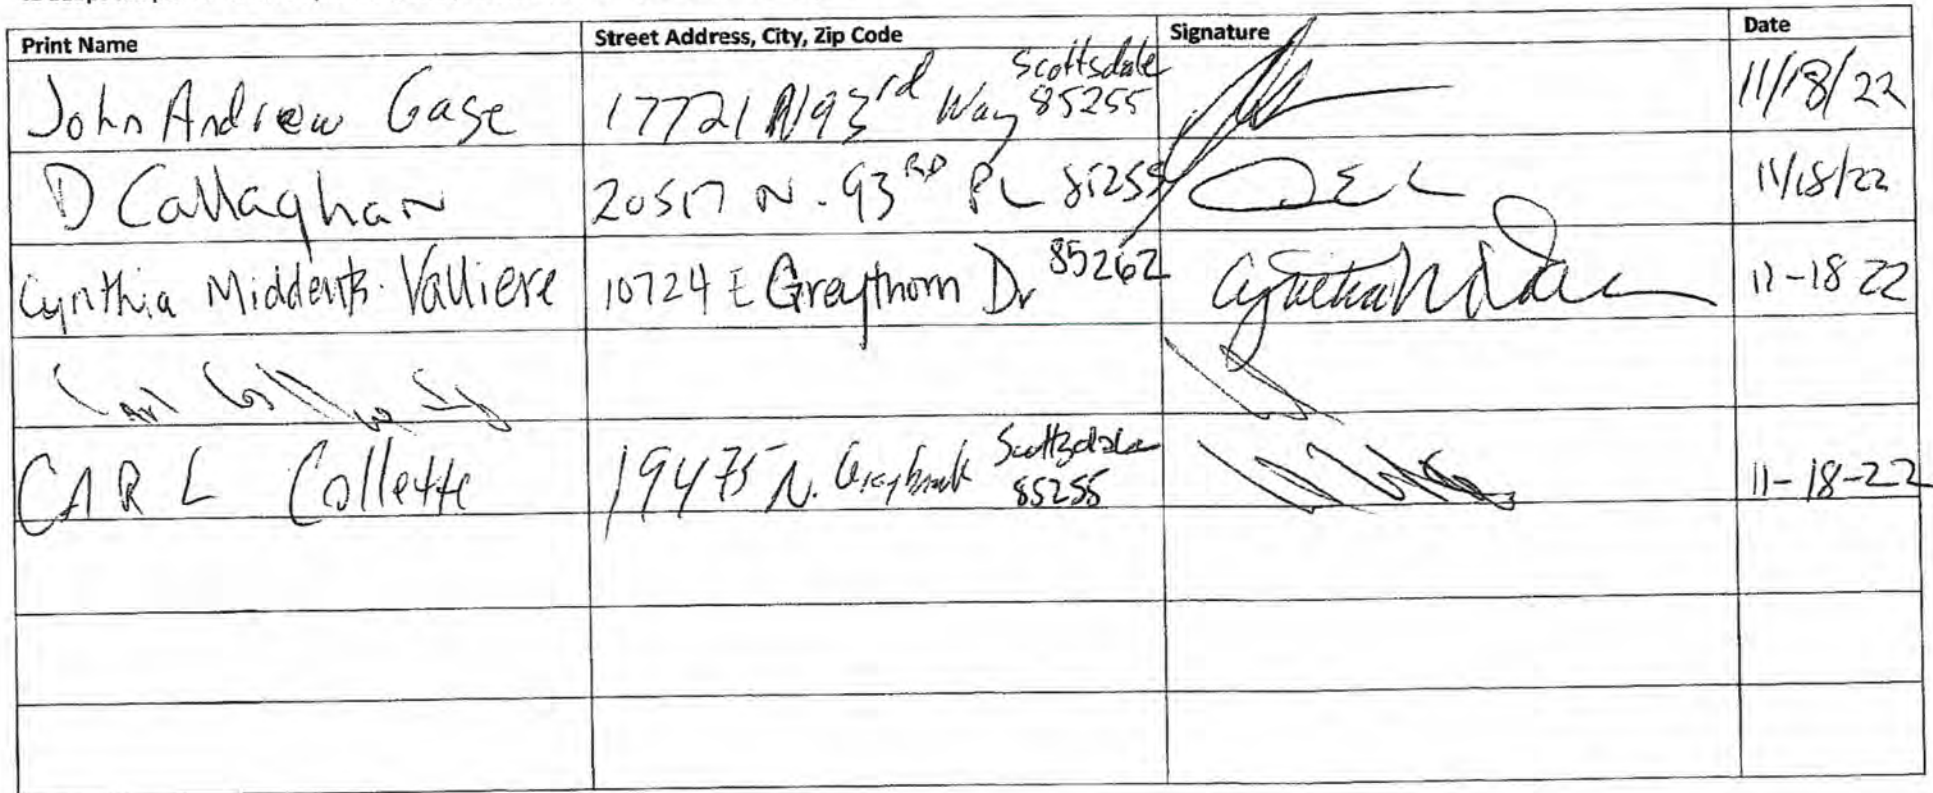 Print Name Street Address, City, Zip Code Signature Date
John Andrew Gase 17721 N 93rd Way Scottsdale 85255 11/18/22
D Callaghan 20517 N. 93RD PL 85255 11/18/22
Cynthia Middents-Valliere 10724 E Greythorn Dr 85262 11-18 22
Carl
CARL Collette 19475 N. Graybrook Scottsdale 85255 11-18-22